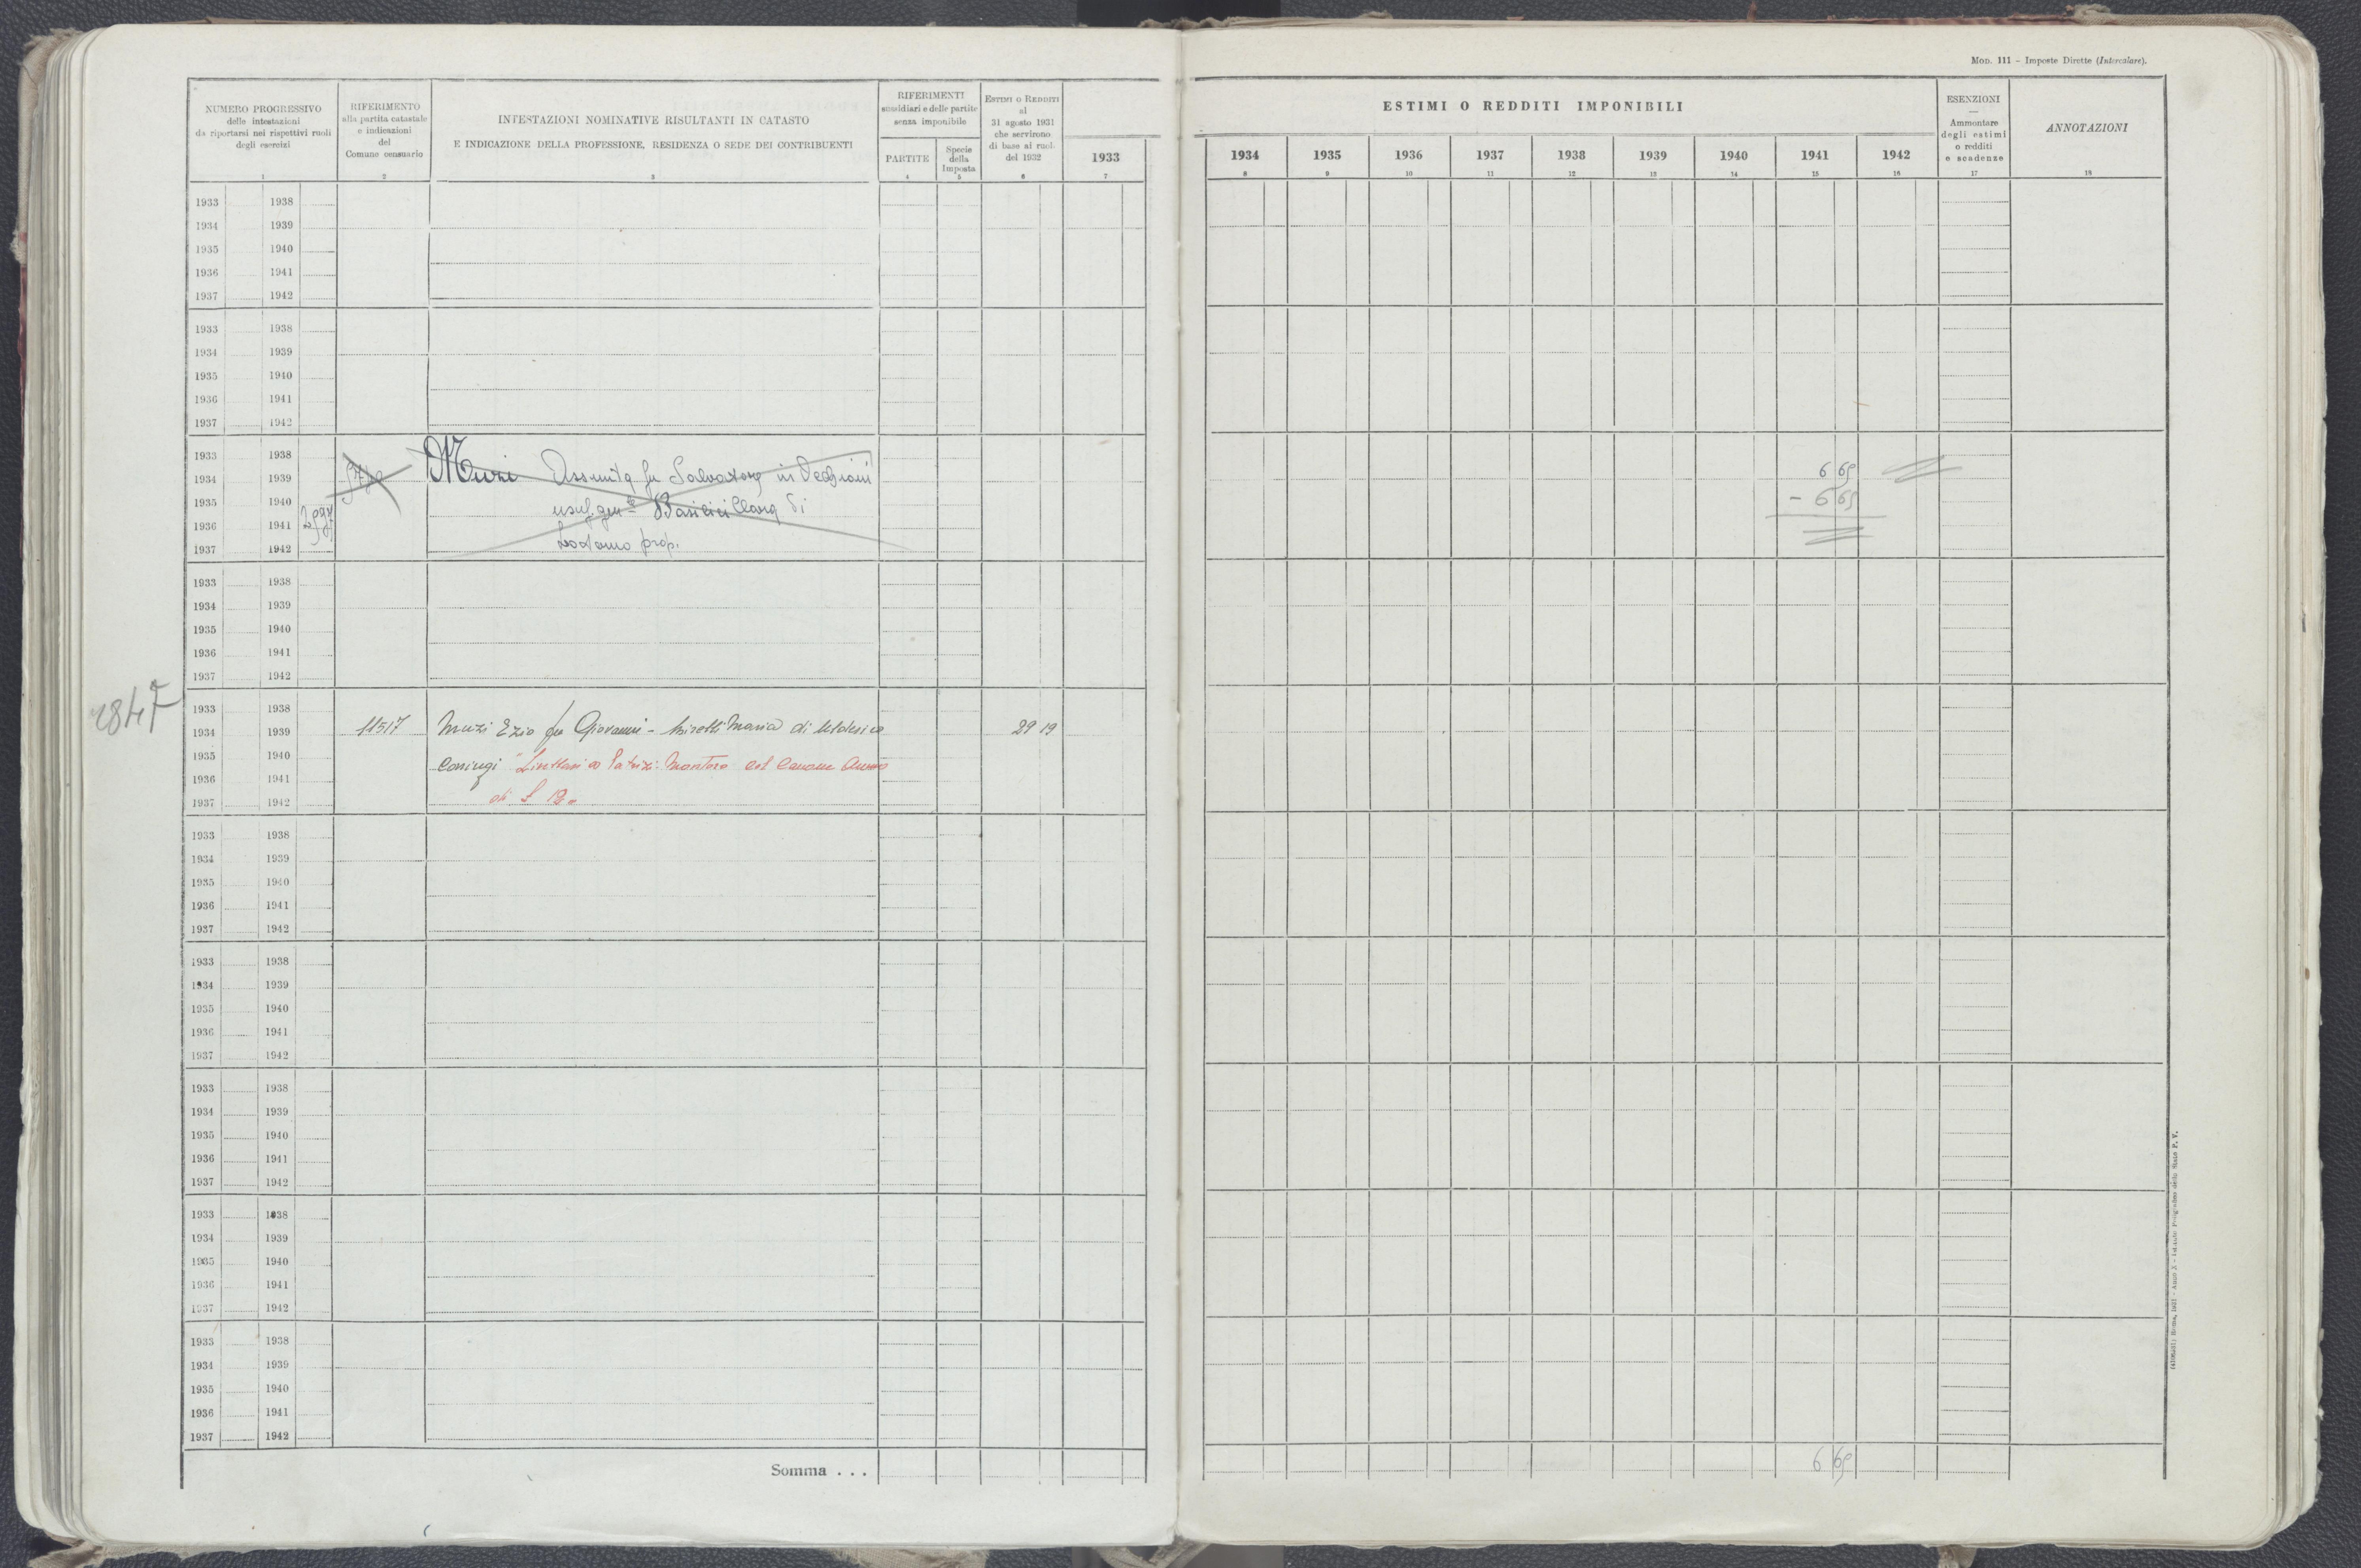 Mod. 111 - Imposte Dirette (Intercalare).
NUMERO PROGRESSIVO
delle intestazioni
da riportarsi nei rispettivi ruoli
degli esercizi
1
RIFERIMENTO
alla partita catastale
e indicazioni
del
Comune censuario
2
INTESTAZIONI NOMINATIVE RISULTANTI IN CATASTO
E INDICAZIONE DELLA PROFESSIONE, RESIDENZA O SEDE DEI CONTRIBUENTI
3
RIFERIMENTI
sussidiari e delle partite
senza imponibile
PARTITE
4
Specie
della
Imposta
5
Estimi o Redditi
al
31 agosto 1931
che servirono
di base ai ruoli
del 1932
6
1933
7
ESTIMI O REDDITI IMPONIBILI
1934 1935 1936 1937 1938 1939 1940 1941 1942
8 9 10 11 12 13 14 15 16
ESENZIONI
—
Ammontare
degli estimi
o redditi
e scadenze
17
ANNOTAZIONI
18
1933 1938
1934 1939
1935 1940
1936 1941
1937 1942
1933 1938
1934 1939
1935 1940
1936 1941
1937 1942
1933 1938
1934 1939 Muzi Assunta fu Salvatore in 6 69
1935 1940 Clara di - 6 69
1936 1941
1937 1942 prop.
1933 1938
1934 1939
1935 1940
1936 1941
1937 1942
2847
1933 1938
1934 1939 11517 Muzi Ezio fu Giovanni - Maria di 29 19
1935 1940 Coniugi Livellari a Patrizi Montoro col Canone Annuo
1936 1941
1937 1942 di £
1933 1938
1934 1939
1935 1940
1936 1941
1937 1942
1933 1938
1934 1939
1935 1940
1936 1941
1937 1942
1933 1938
1934 1939
1935 1940
1936 1941
1937 1942
1933 1938
1934 1939
1935 1940
1936 1941
1937 1942
1933 1938
1934 1939
1935 1940
1936 1941
1937 1942
Somma . . . 6 69